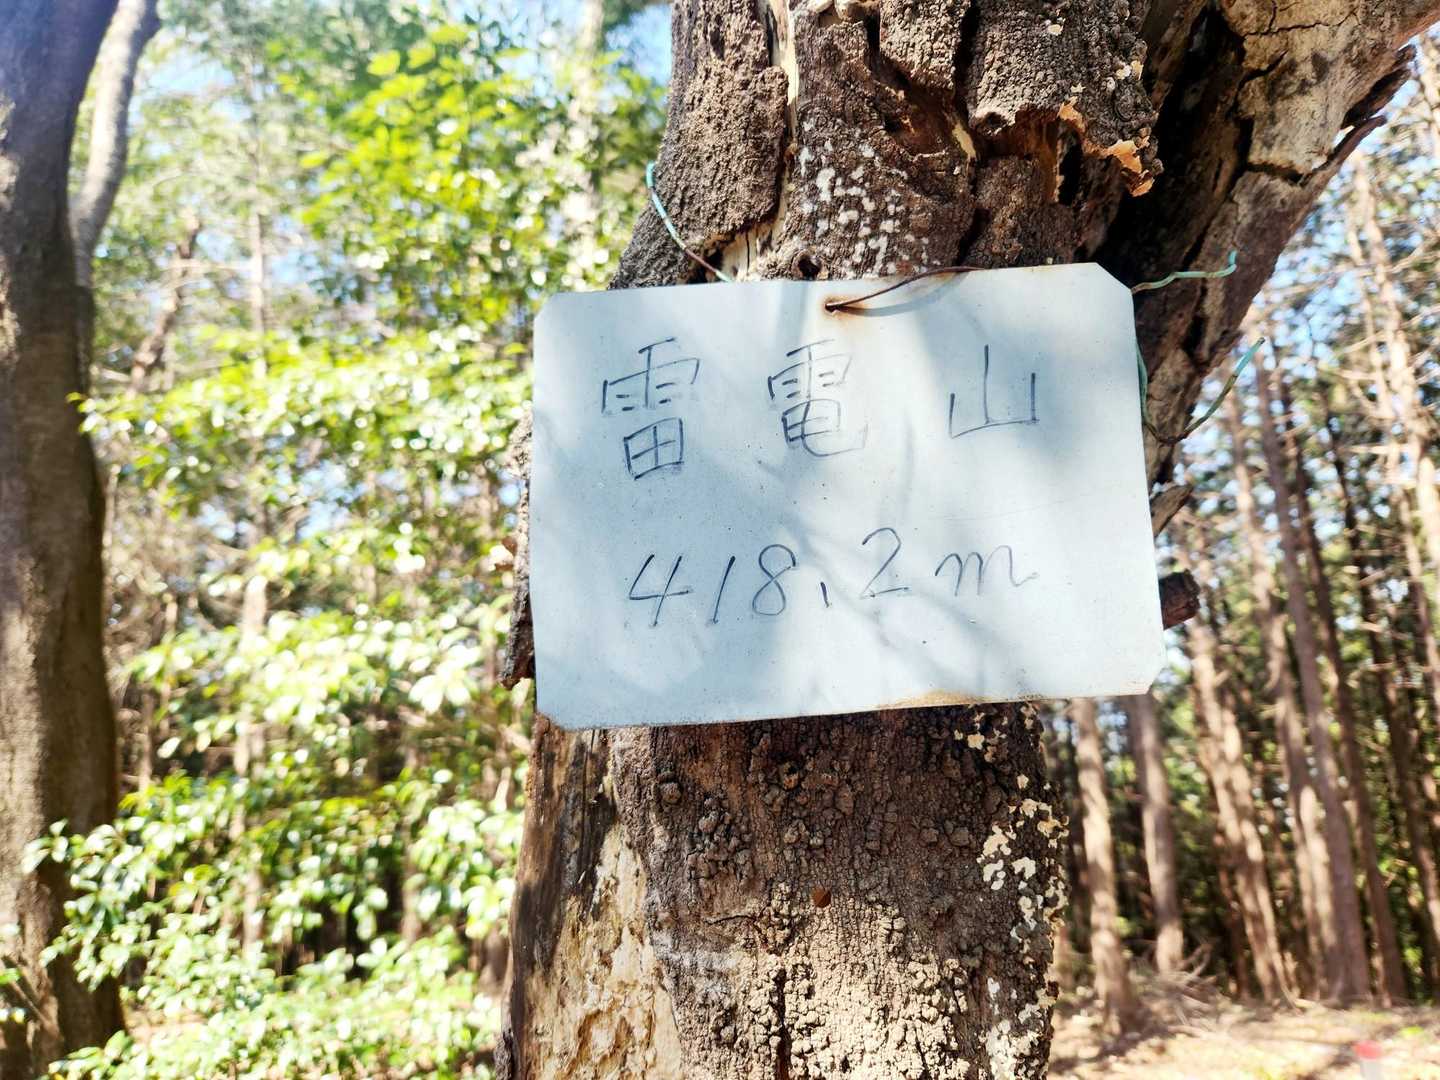 雷電山
418.2m